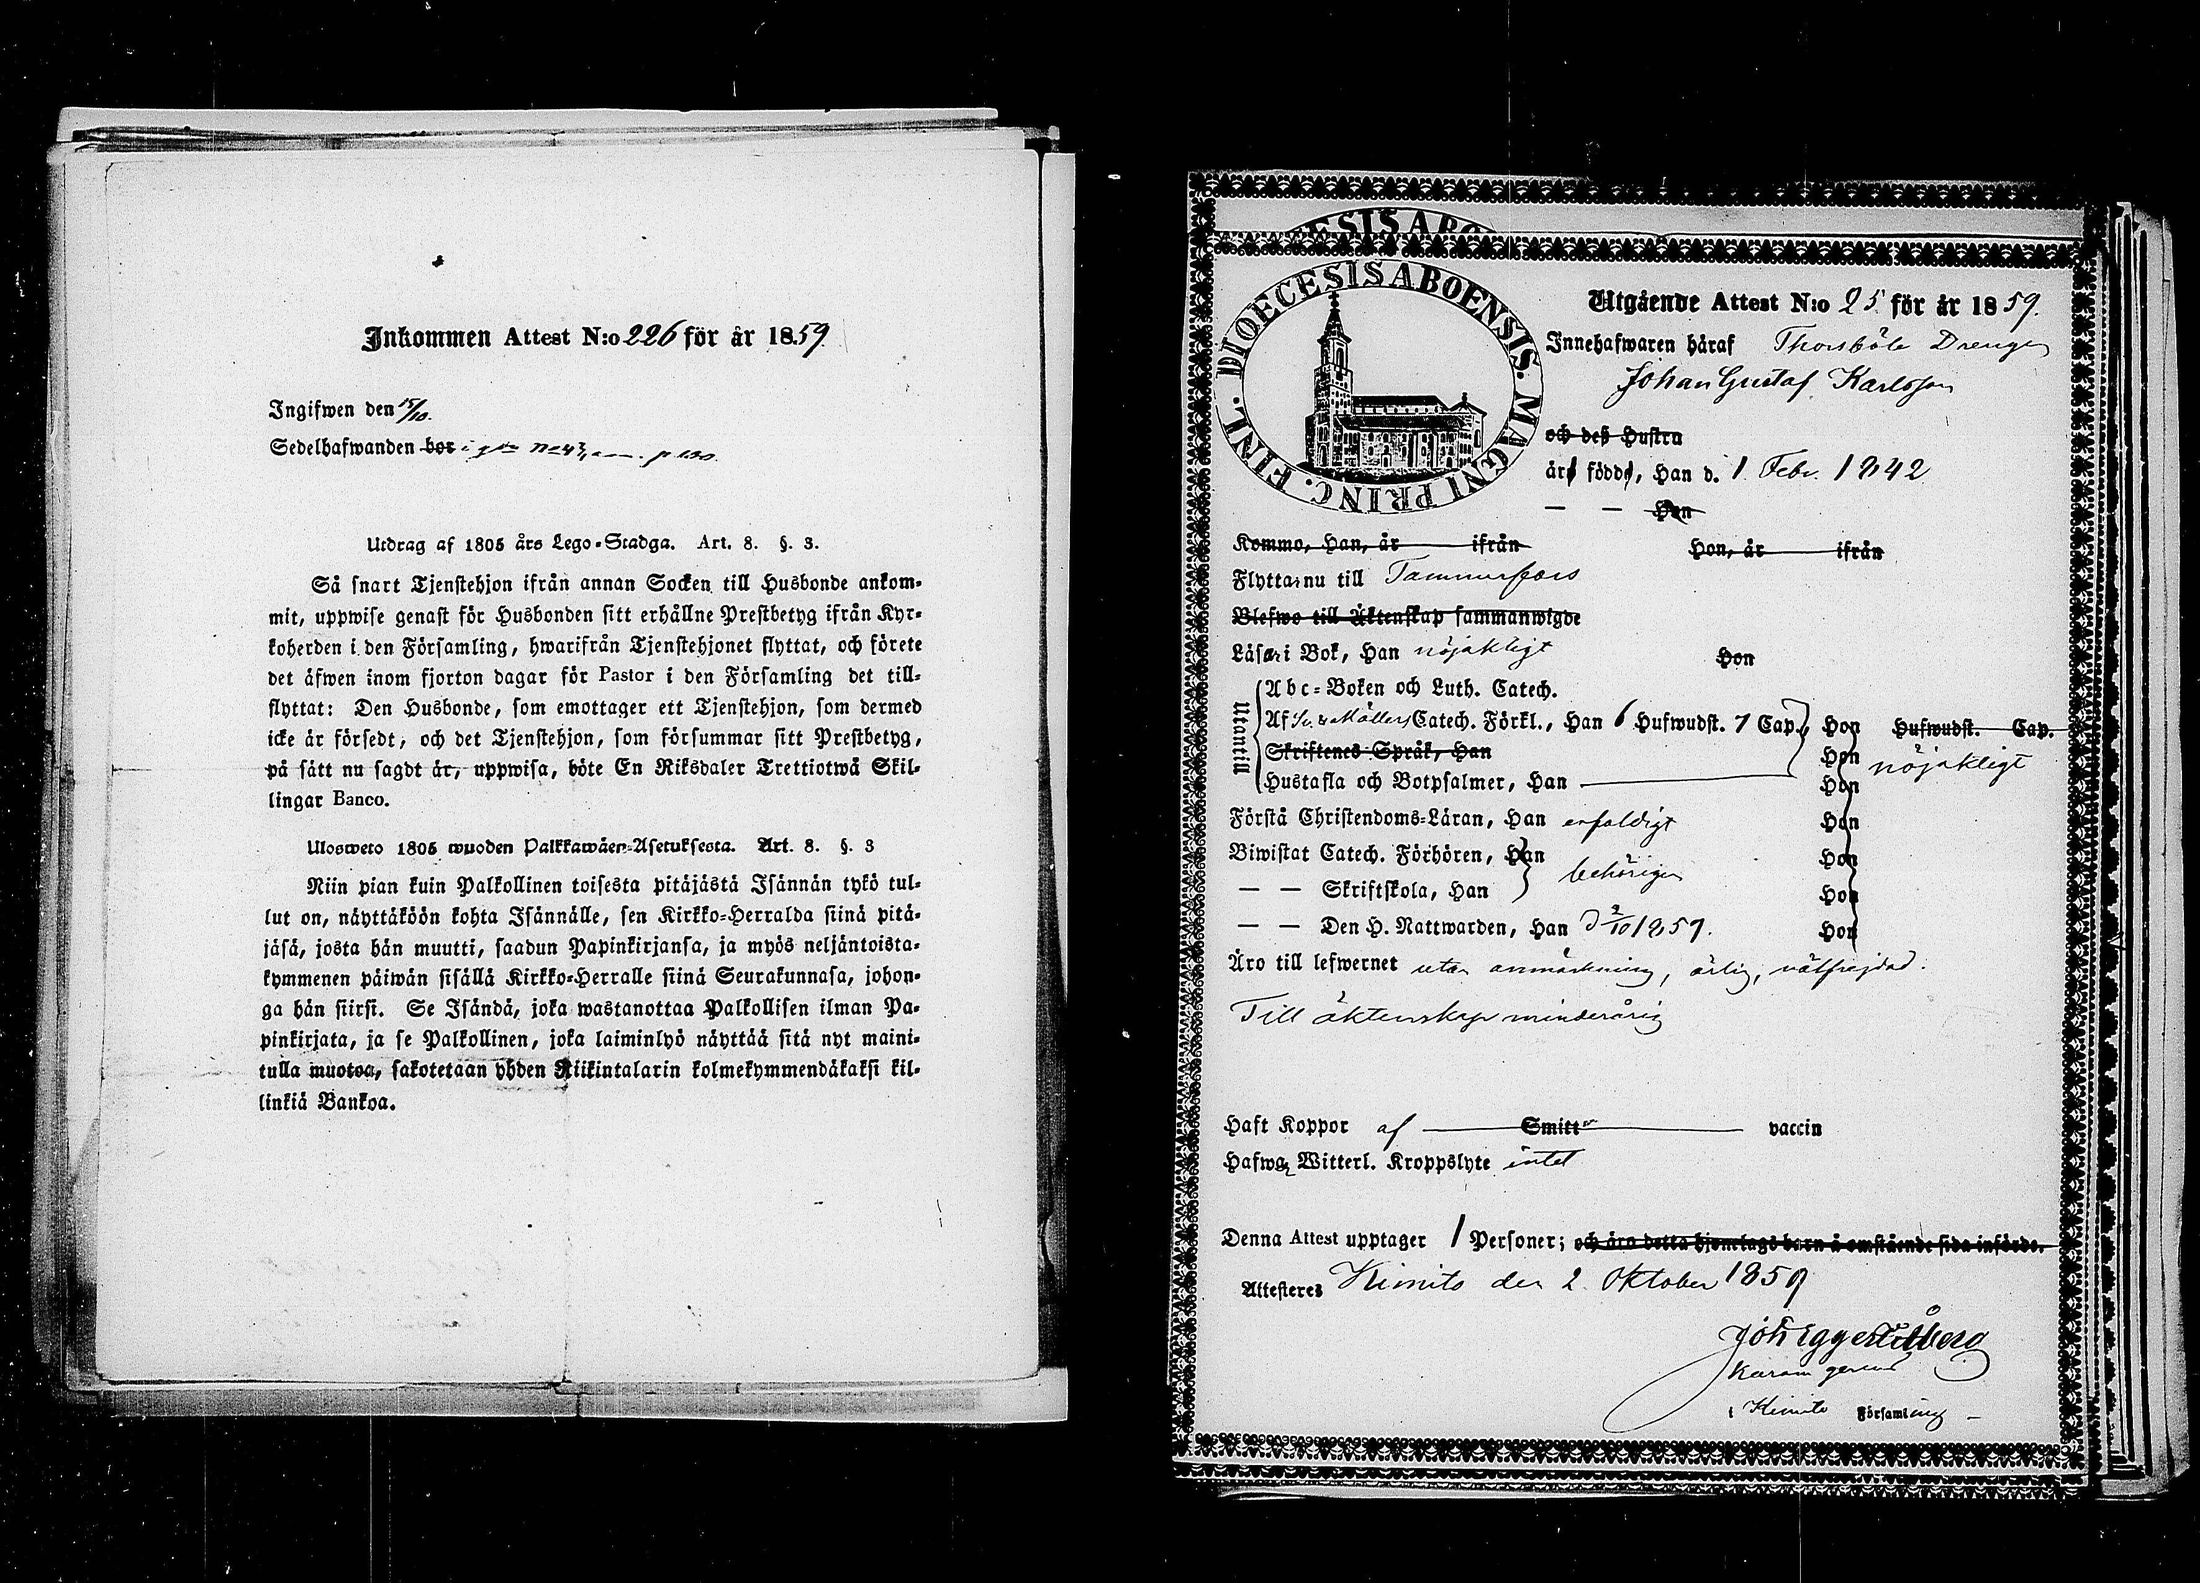 Inkommen Attest N:o 226 för år 1859.
Ingifwen den 15/10.
Sedelhafwanden bor i p 130
Utdrag af 1805 års Lego-Stadga. Art. 8. §. 3.
Så snart Tjenstehjon ifrån annan Socken till Husbonde ankom-
mit, uppwise genast för Husbonden sitt erhållne Prestbetyg ifrån Kyr-
koherden i den Församling, hwarifrån Tjenstehjonet flyttat, och förete
det äfwen inom fjorton dagar för Pastor i den Församling det till-
flyttat: Den Husbonde, som emottager ett Tjenstehjon, som dermed
icke är försedt, och det Tjenstehjon, som försummar sitt Prestbetyg,
på sätt nu sagdt är, uppwisa, böte En Riksdaler Trettiotwå Skil-
lingar Banco.
Ulosweto 1805 wuoden Palkkawäen-Asetuksesta. Art. 8. §. 3
Niin pian kuin Palkollinen toisesta pitäjästä Isännän tykö tul-
lut on, näyttäköön kohta Isännälle, sen Kirkko-Herralda siinä pitä-
jäsä, josta hän muutti, saadun Papinkirjansa, ja myös neljäntoista-
kymmenen päiwän sisällä Kirkko-Herralle siinä Seurakunnasa, johon-
ga hän siirsi. Se Isändä, joka wastanottaa Palkollisen ilman Pa-
pinkirjata, ja se Palkollinen, joka laiminlyö näyttää sitä nyt maini-
tulla muotoa, sakotetaan yhden Riikintalarin kolmekymmendäkaksi kil-
linkiä Bankoa.
DIOECESIS ABOENSIS. MAGNI PRINC. FINL.
Utgående Attest N:o 25 för år 1859.
Innehafwaren häraf Thorsböle Drengen
Johan Gustaf Karlsson
och deß Hustru
äro födde, Han d. 1 Febr. 1842
— — Hon
Kommo, Han, år ifrån Hon, år ifrån
Flytta nu till Tammerfors
Blefwo till Äktenskap sammanwigde
Läsa i Bok, Han nöjaktigt Hon
Utantill
Abc-Boken och Luth. Catech.
Af Catech. Förkl., Han 6 Hufwudst. 7 Cap., Hon Hufwudst. Cap.
Skriftenes Språk, Han Hon nöjaktigt
Hustafla och Botpsalmer, Han Hon
Förstå Christendoms-Läran, Han enfaldigt Hon
Biwistat Catech. Förhören, Han behörigen Hon
— — Skriftskola, Han Hon
— — Den H. Nattwarden, Han d 2/10 1859. Hon
Äro till lefwernet utan anmärkning, ärlig, välfrejdad.
Till äktenskap minderårig
Haft Koppor af Smitt vaccin
Hafwa Witterl. Kroppslyte intet
Denna Attest upptager 1 Personer; och äro detta hjonelags barn å omstående sida införde.
Attesteres Kimito den 2 Oktober 1859
Joh Eggert Åberg
i Kimito Församling